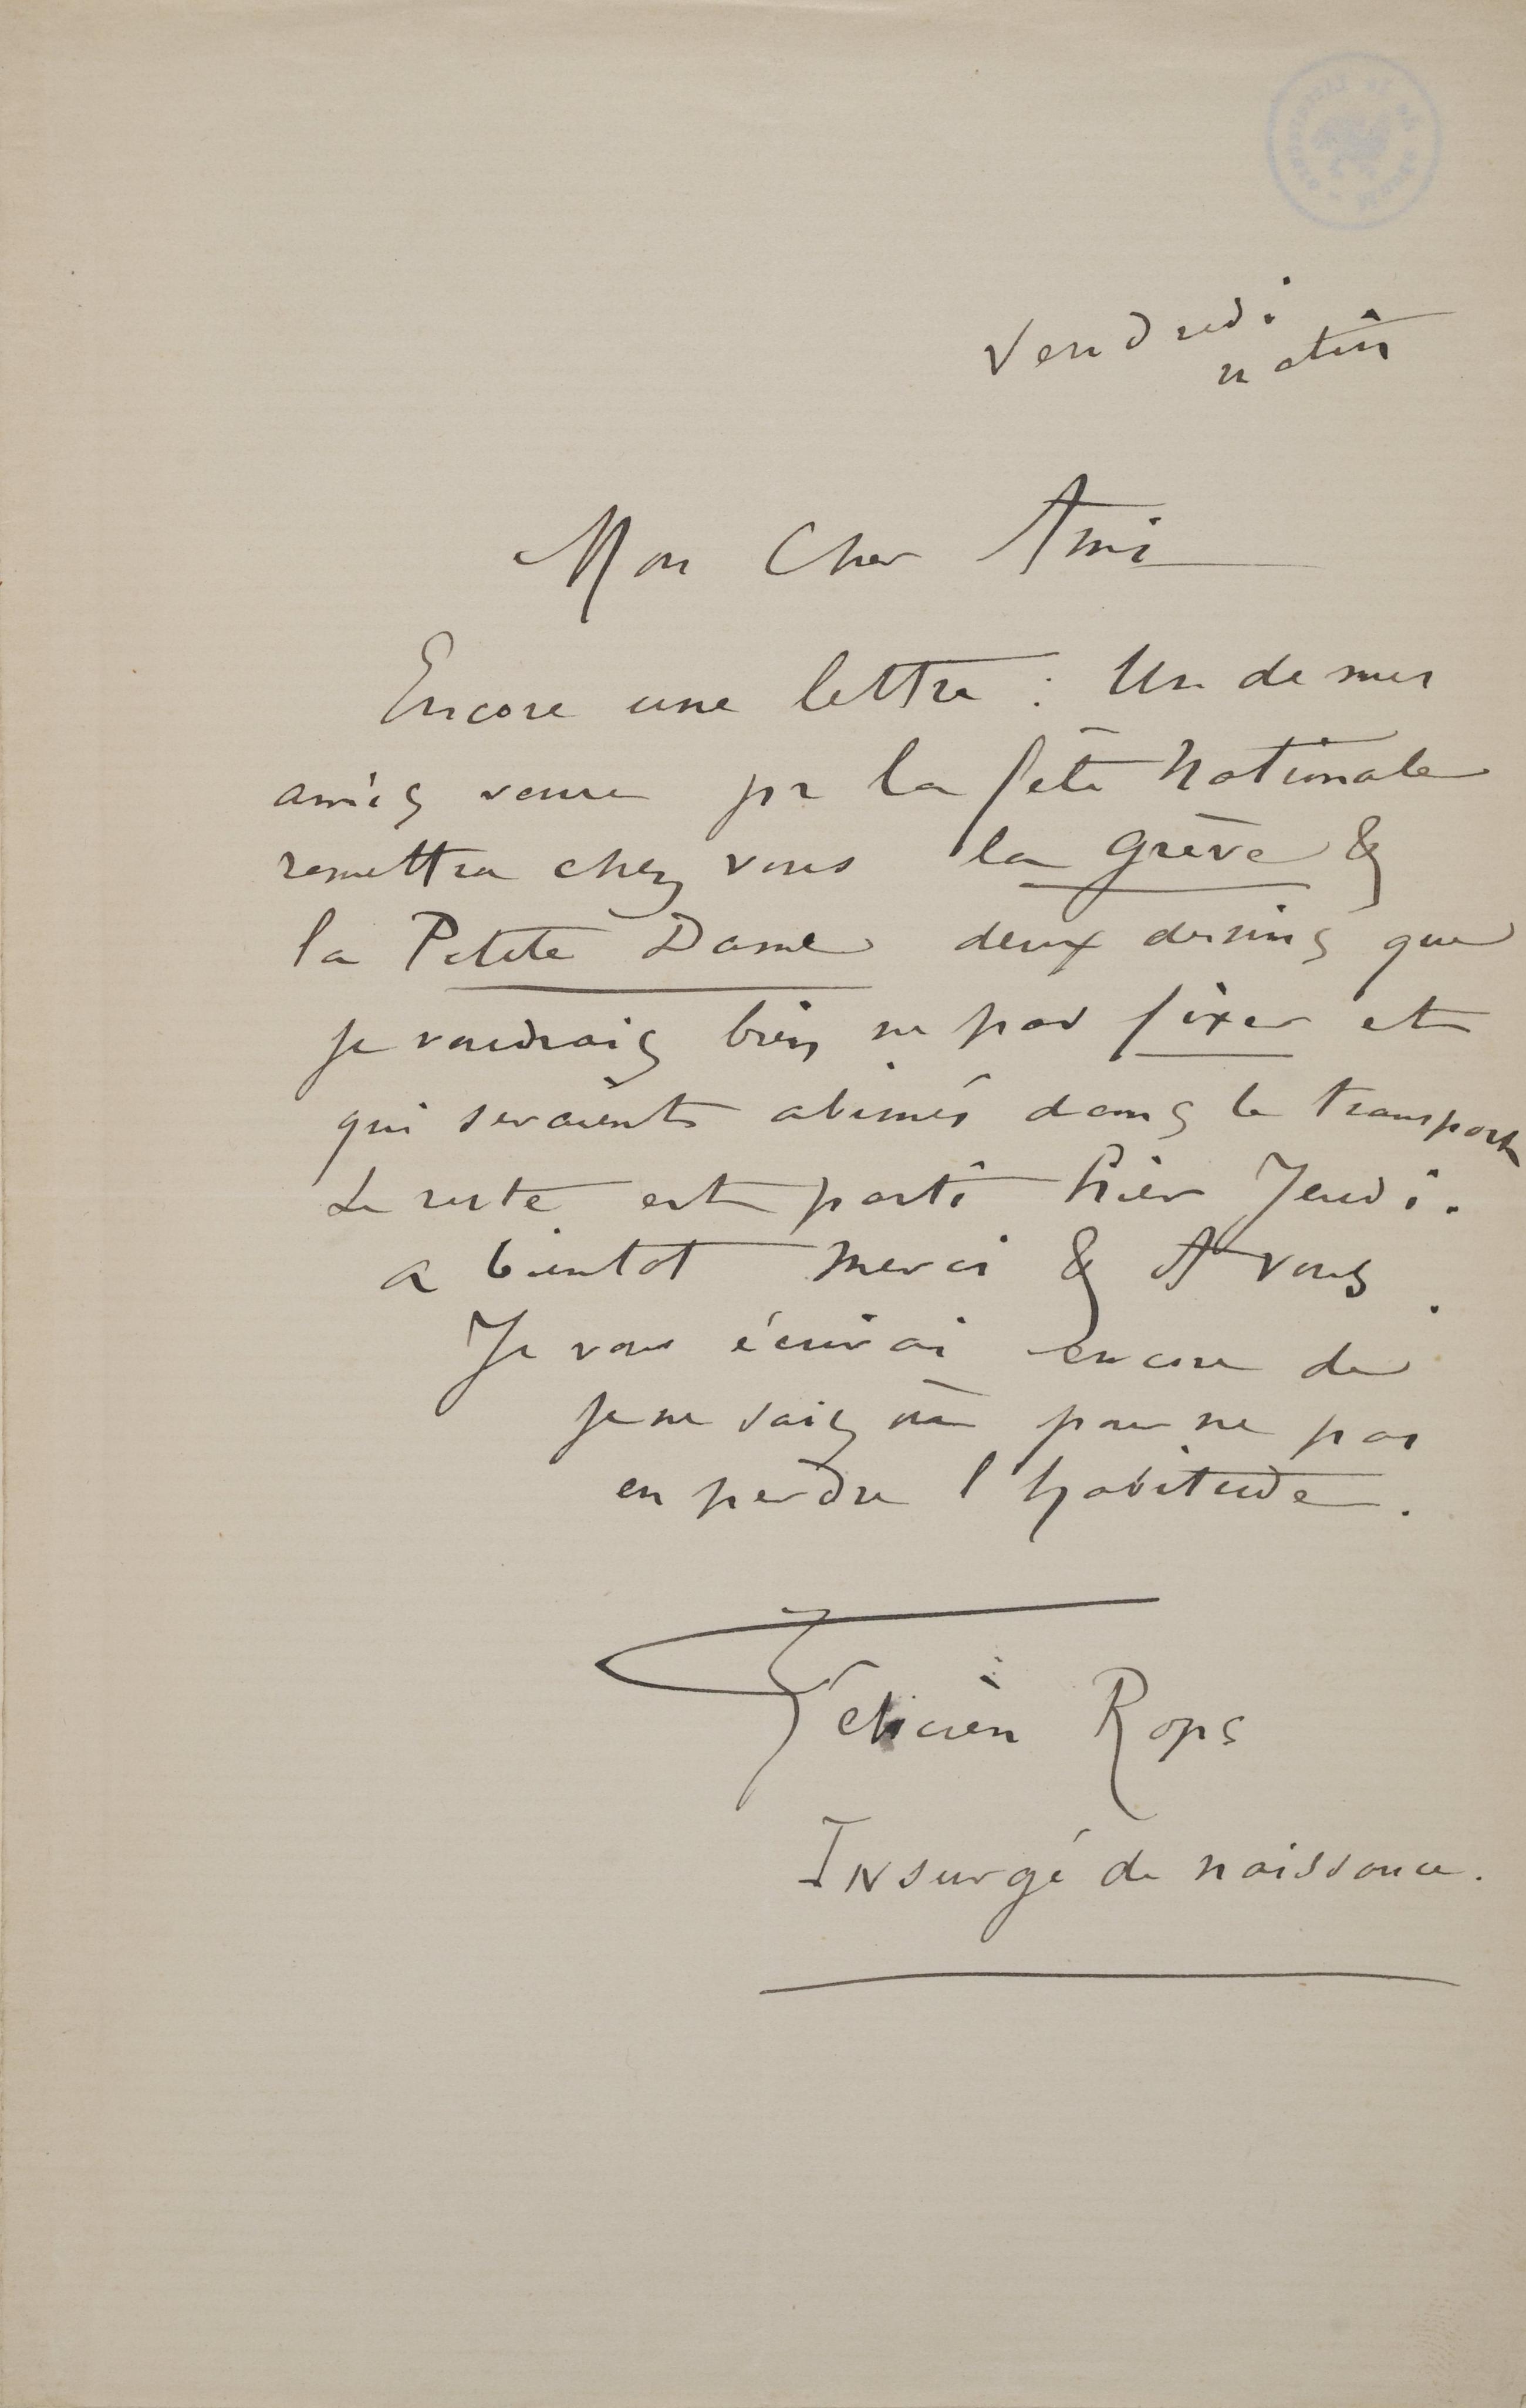 Vendredi
matin
Mon Cher Ami
Encore une lettre : Un de mes
amis venu pr la fête Nationale
remettra chez vous la grève &
la Petite Dame deux dessins que
je voudrais bien ne pas fixer et
qui seraient abimés dans le transport
Le reste est parti hier Jeudi.
a bientot merci & A vous.
Je vous écrirai encore de
je ne sais où pour ne pas
en perdre l'habitude.
Félicien Rops
Insurgé de naissance.